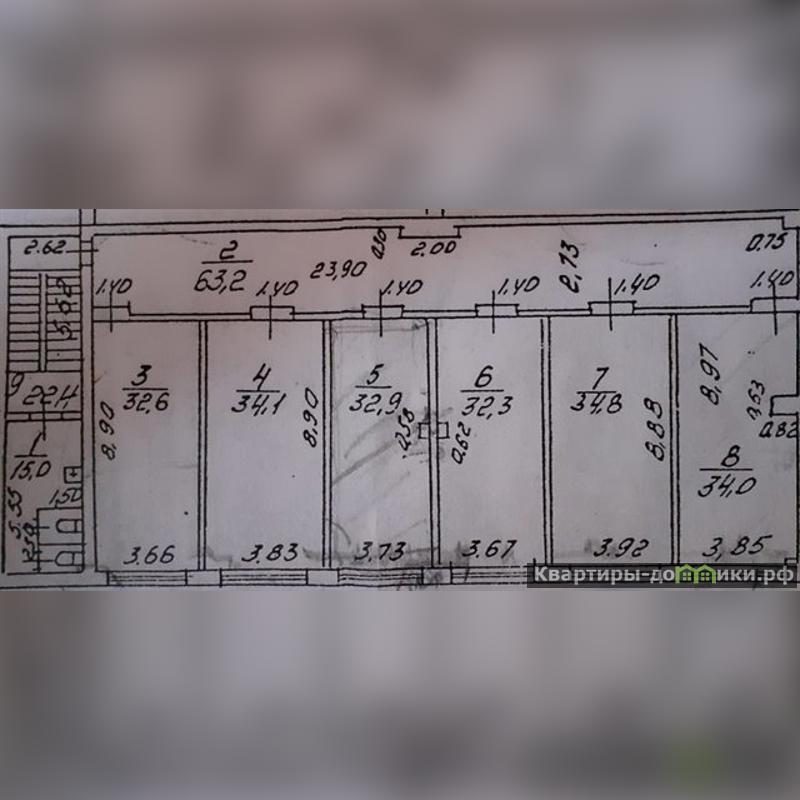 2.62
2
63,2
23,90
0.30
2.00
2,73
0.75
1.40
1.40
1.40
1.40
1.40
1.40
5.62
9
22,4
3
32.6
8,90
4
34,1
8,90
5
32,9
0.58
6
32,3
0.62
7
34,8
8,88
8,97
8
34,0
0,63
0.82
1
15,0
5.55
1.50
3.66
3.83
3.73
3.67
3.92
3,85
Квартиры-домики.рф